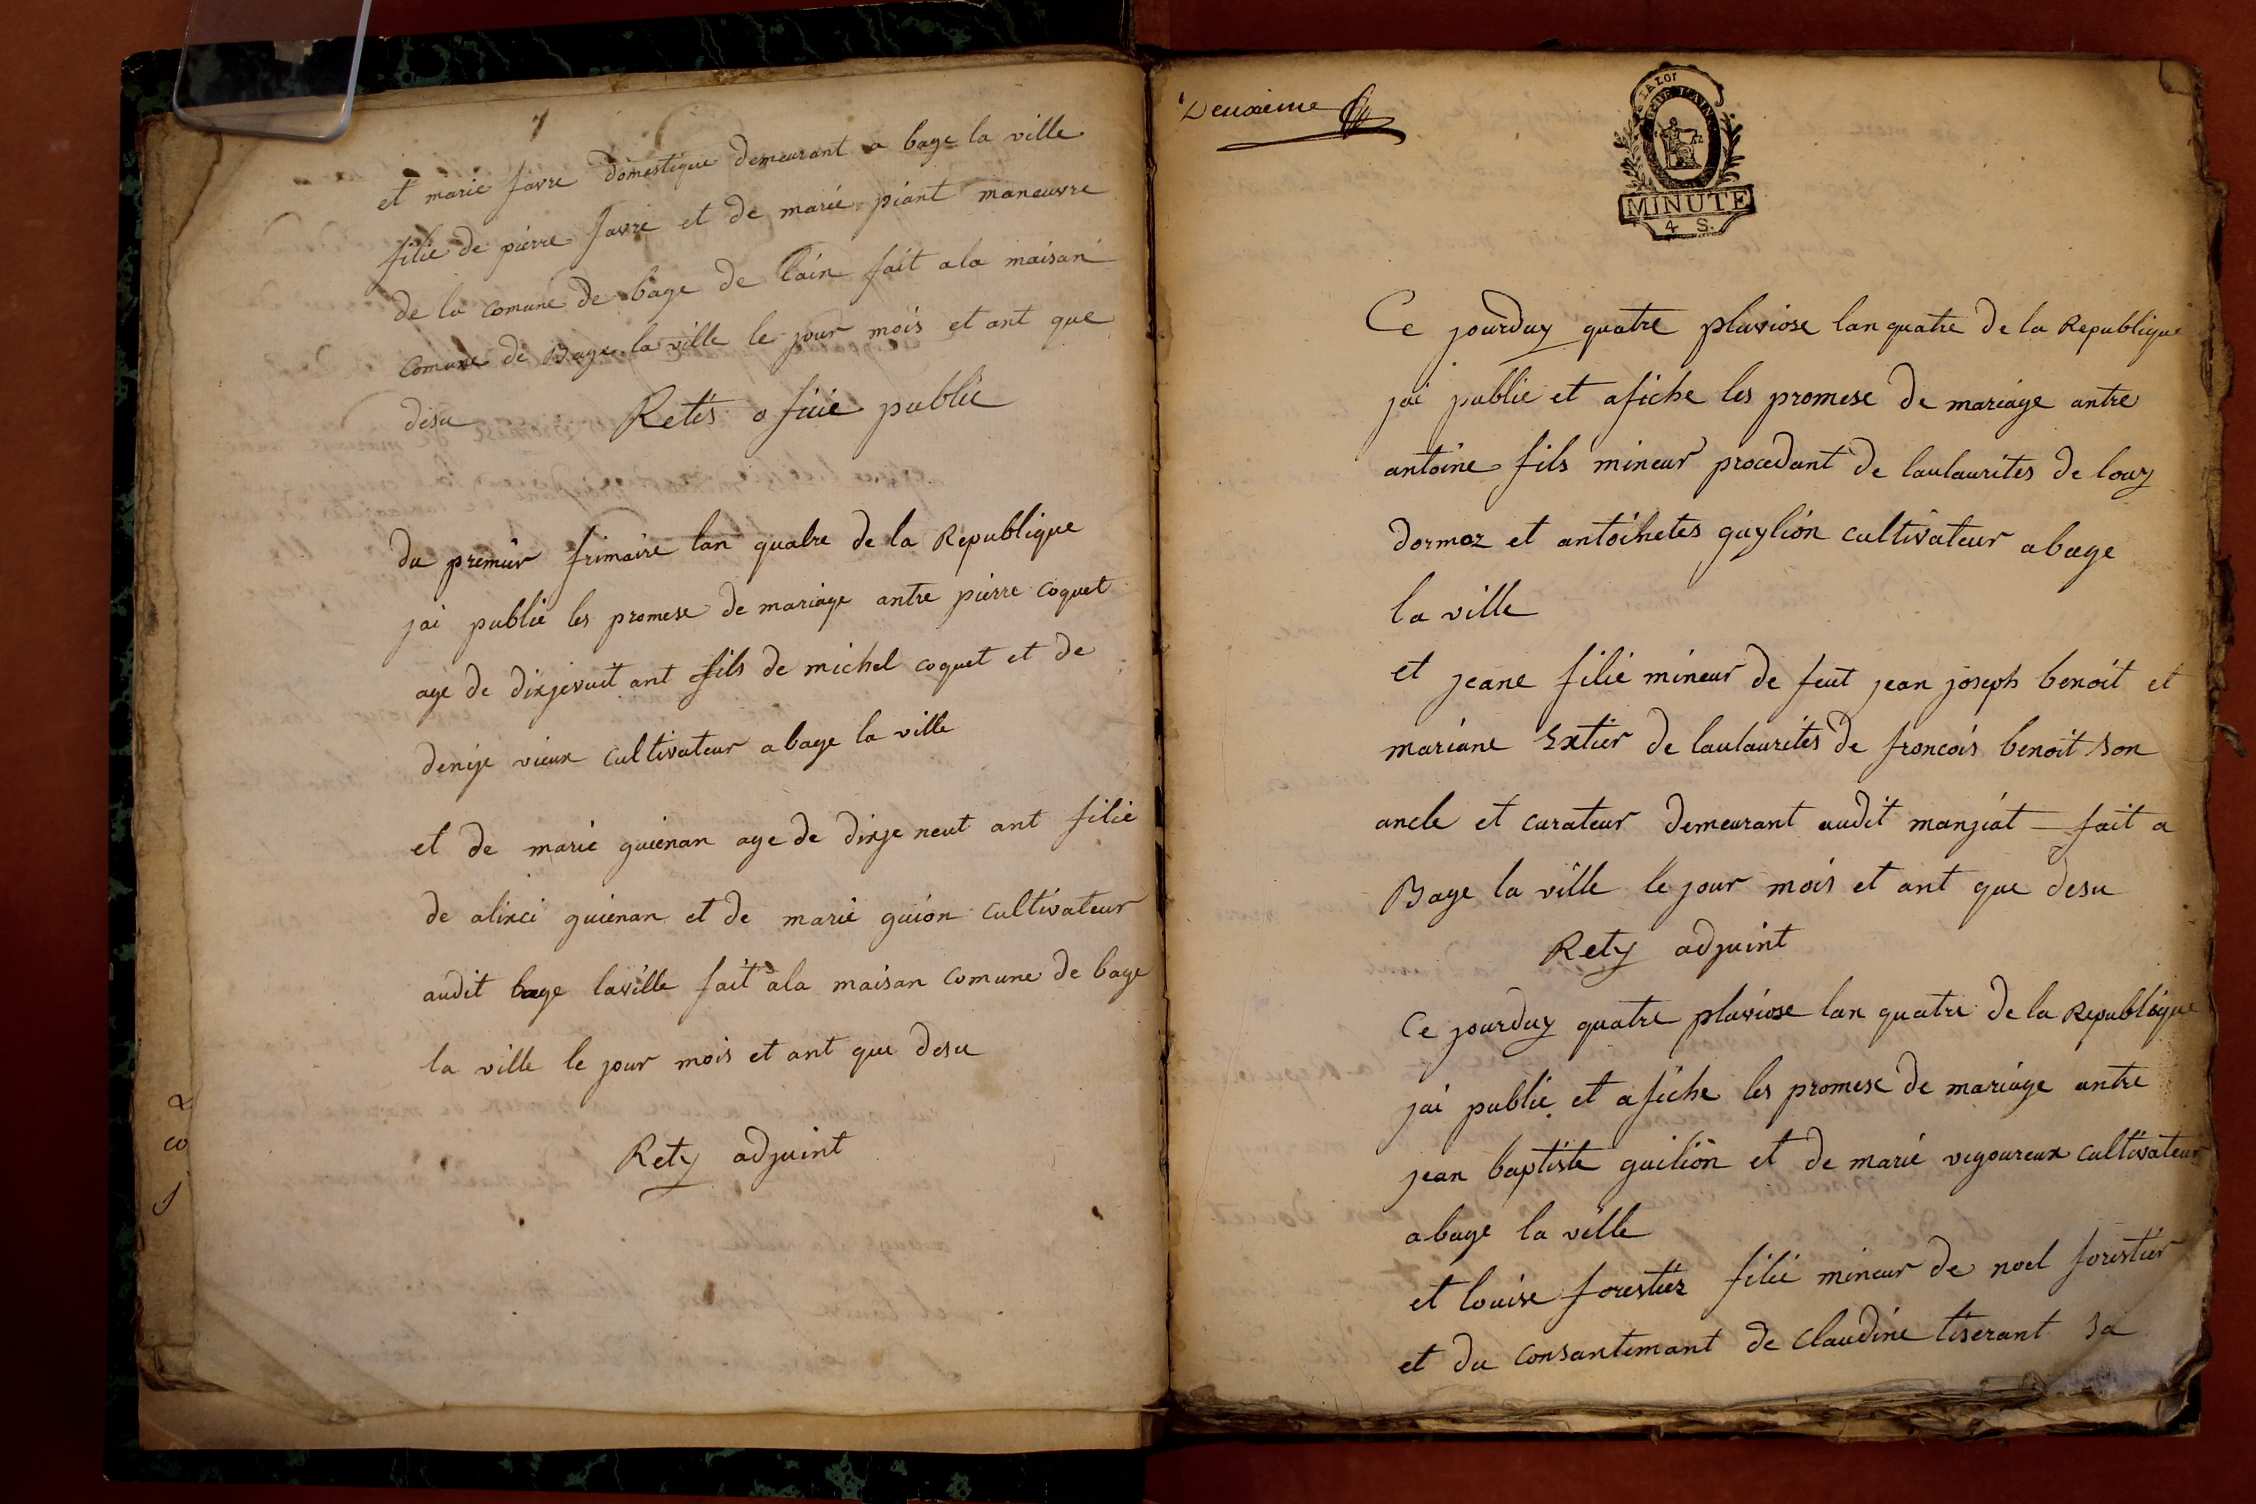 et marie favre domestique demeurant a bage la ville
filie de pierre favre et de marie piant maneuvre
de la comune de bage de lain fait ala maisan
comune de Bage la ville le jour mois et ant que
desu Retis ofície public
du premiir frimaire lan quatre de la Republique
jai publié les promese de mariage antre pierre coquet
age de dixjevuit ant fils de michel coquet et de
denije vieux cultivateur abage la ville
et de marie guienan age de dixje neut ant filie
de alixci guienan et de marie guion cultivateur
audit bage laville fait ala maisan comune de bage
la ville le jour mois et ant que desu
Rety adjuint
Deuxieme
LA LOI
MINUTE
4 S.
Ce jourduy quatre pluviose lan quatre de la Republique
jai publie et afiche les promese de mariage antre
antoine fils mineur procedant de laulaurites de louy
dormoz et antoihetes guylion cultivateur abage
la ville
et jeane filie mineur de feut jean joseph benoit et
mariane Extier de laulaurites de froncois benoit son
ancle et curateur demeurant audit manziat fait a
Bage la ville le jour mois et ant que desu
Rety adjuint
Ce jourduy quatre pluviose lan quatre de la Republique
jai publie et afiche les promese de mariage antre
jean baptiste guilion et de marie vigoureux cultivateur
abage la ville
et louise forestier filie mineur de noel forestier
et du consantemant de claudine tiserant sa